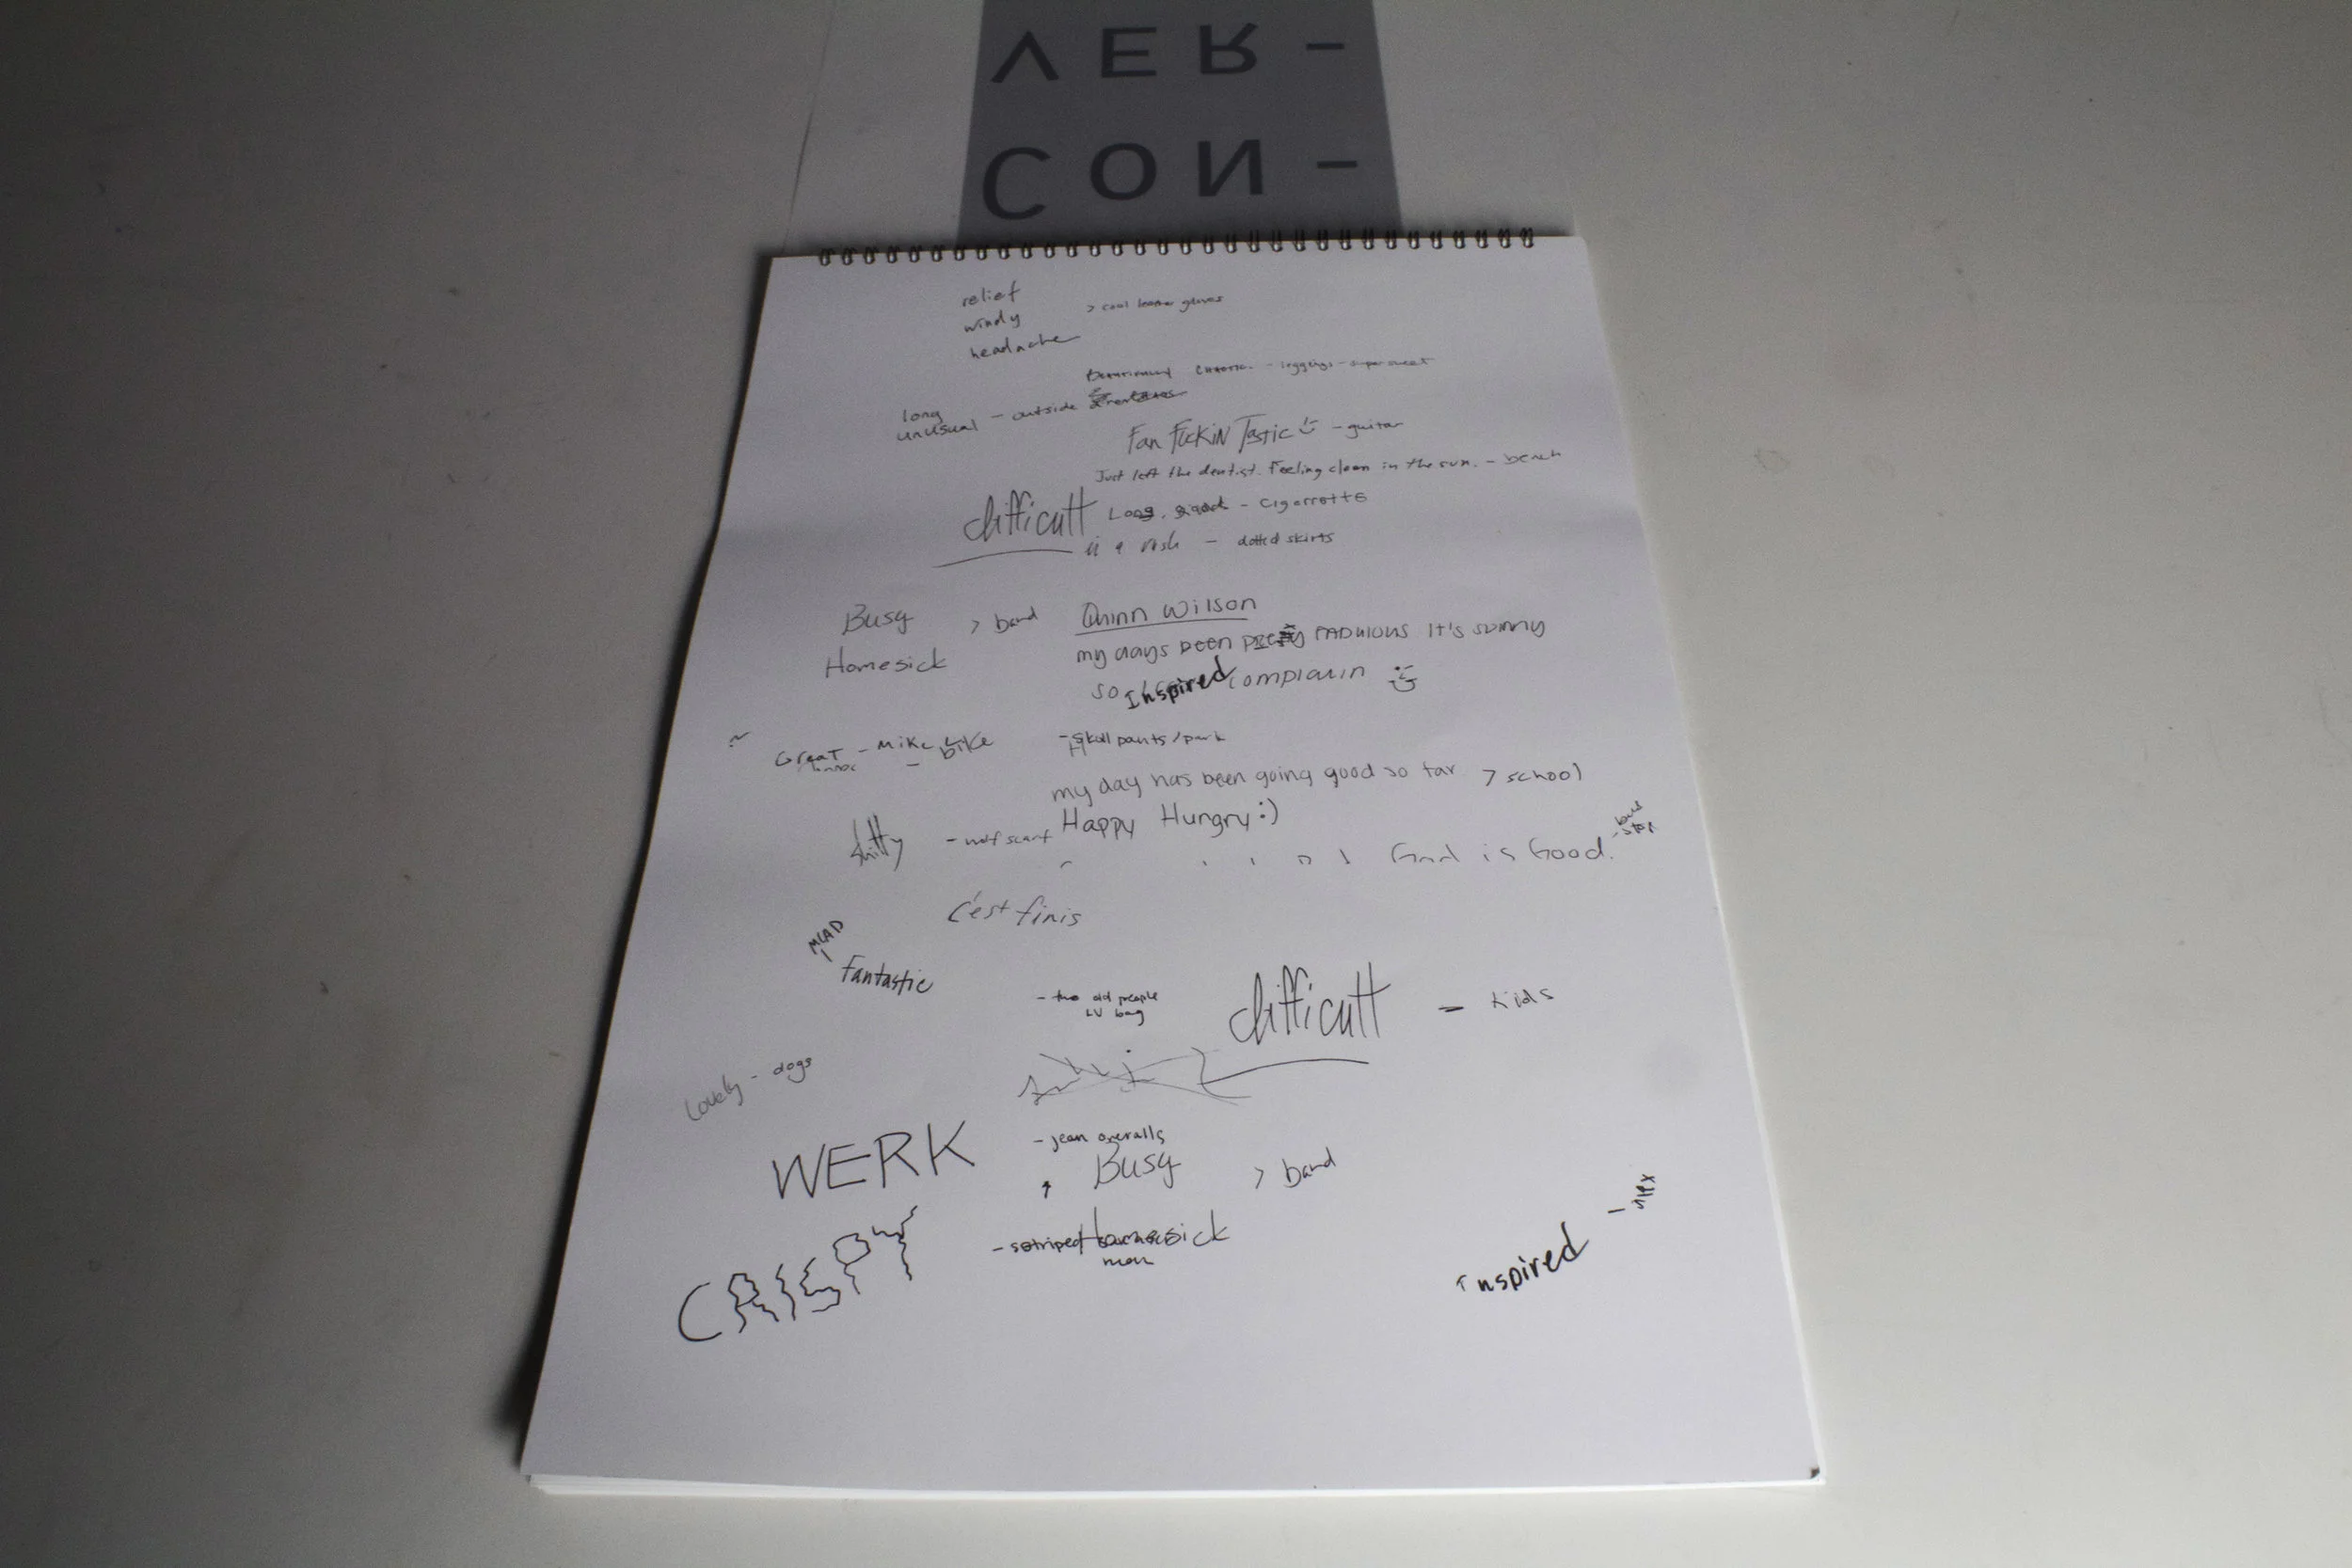 VER-
CON-
relief
windy > cool leather gloves
headache
- leggings - super sweet
long
unusual - outside
Fan FuckiN Tastic - guitar
Just left the dentist. Feeling clean in the sun. - bench
difficult Long, good - cigarrotte
is a - dotted skirts
Busy > band Quinn Wilson
Homesick my days been pretty fabulous it's sunny
so Inspired complain
Great - Mike bike - skull pants/park
my day has been going good so far > school
shitty - wolf scarf Happy Hungry :)
God is Good. - bus stop
c'est finis
MCAD
fantastic
- two old people
LV bag
difficult - kids
Lovely - dogs
WERK - jean overalls
Busy > band
CRISPY - striped homesick
man
Inspired - alex